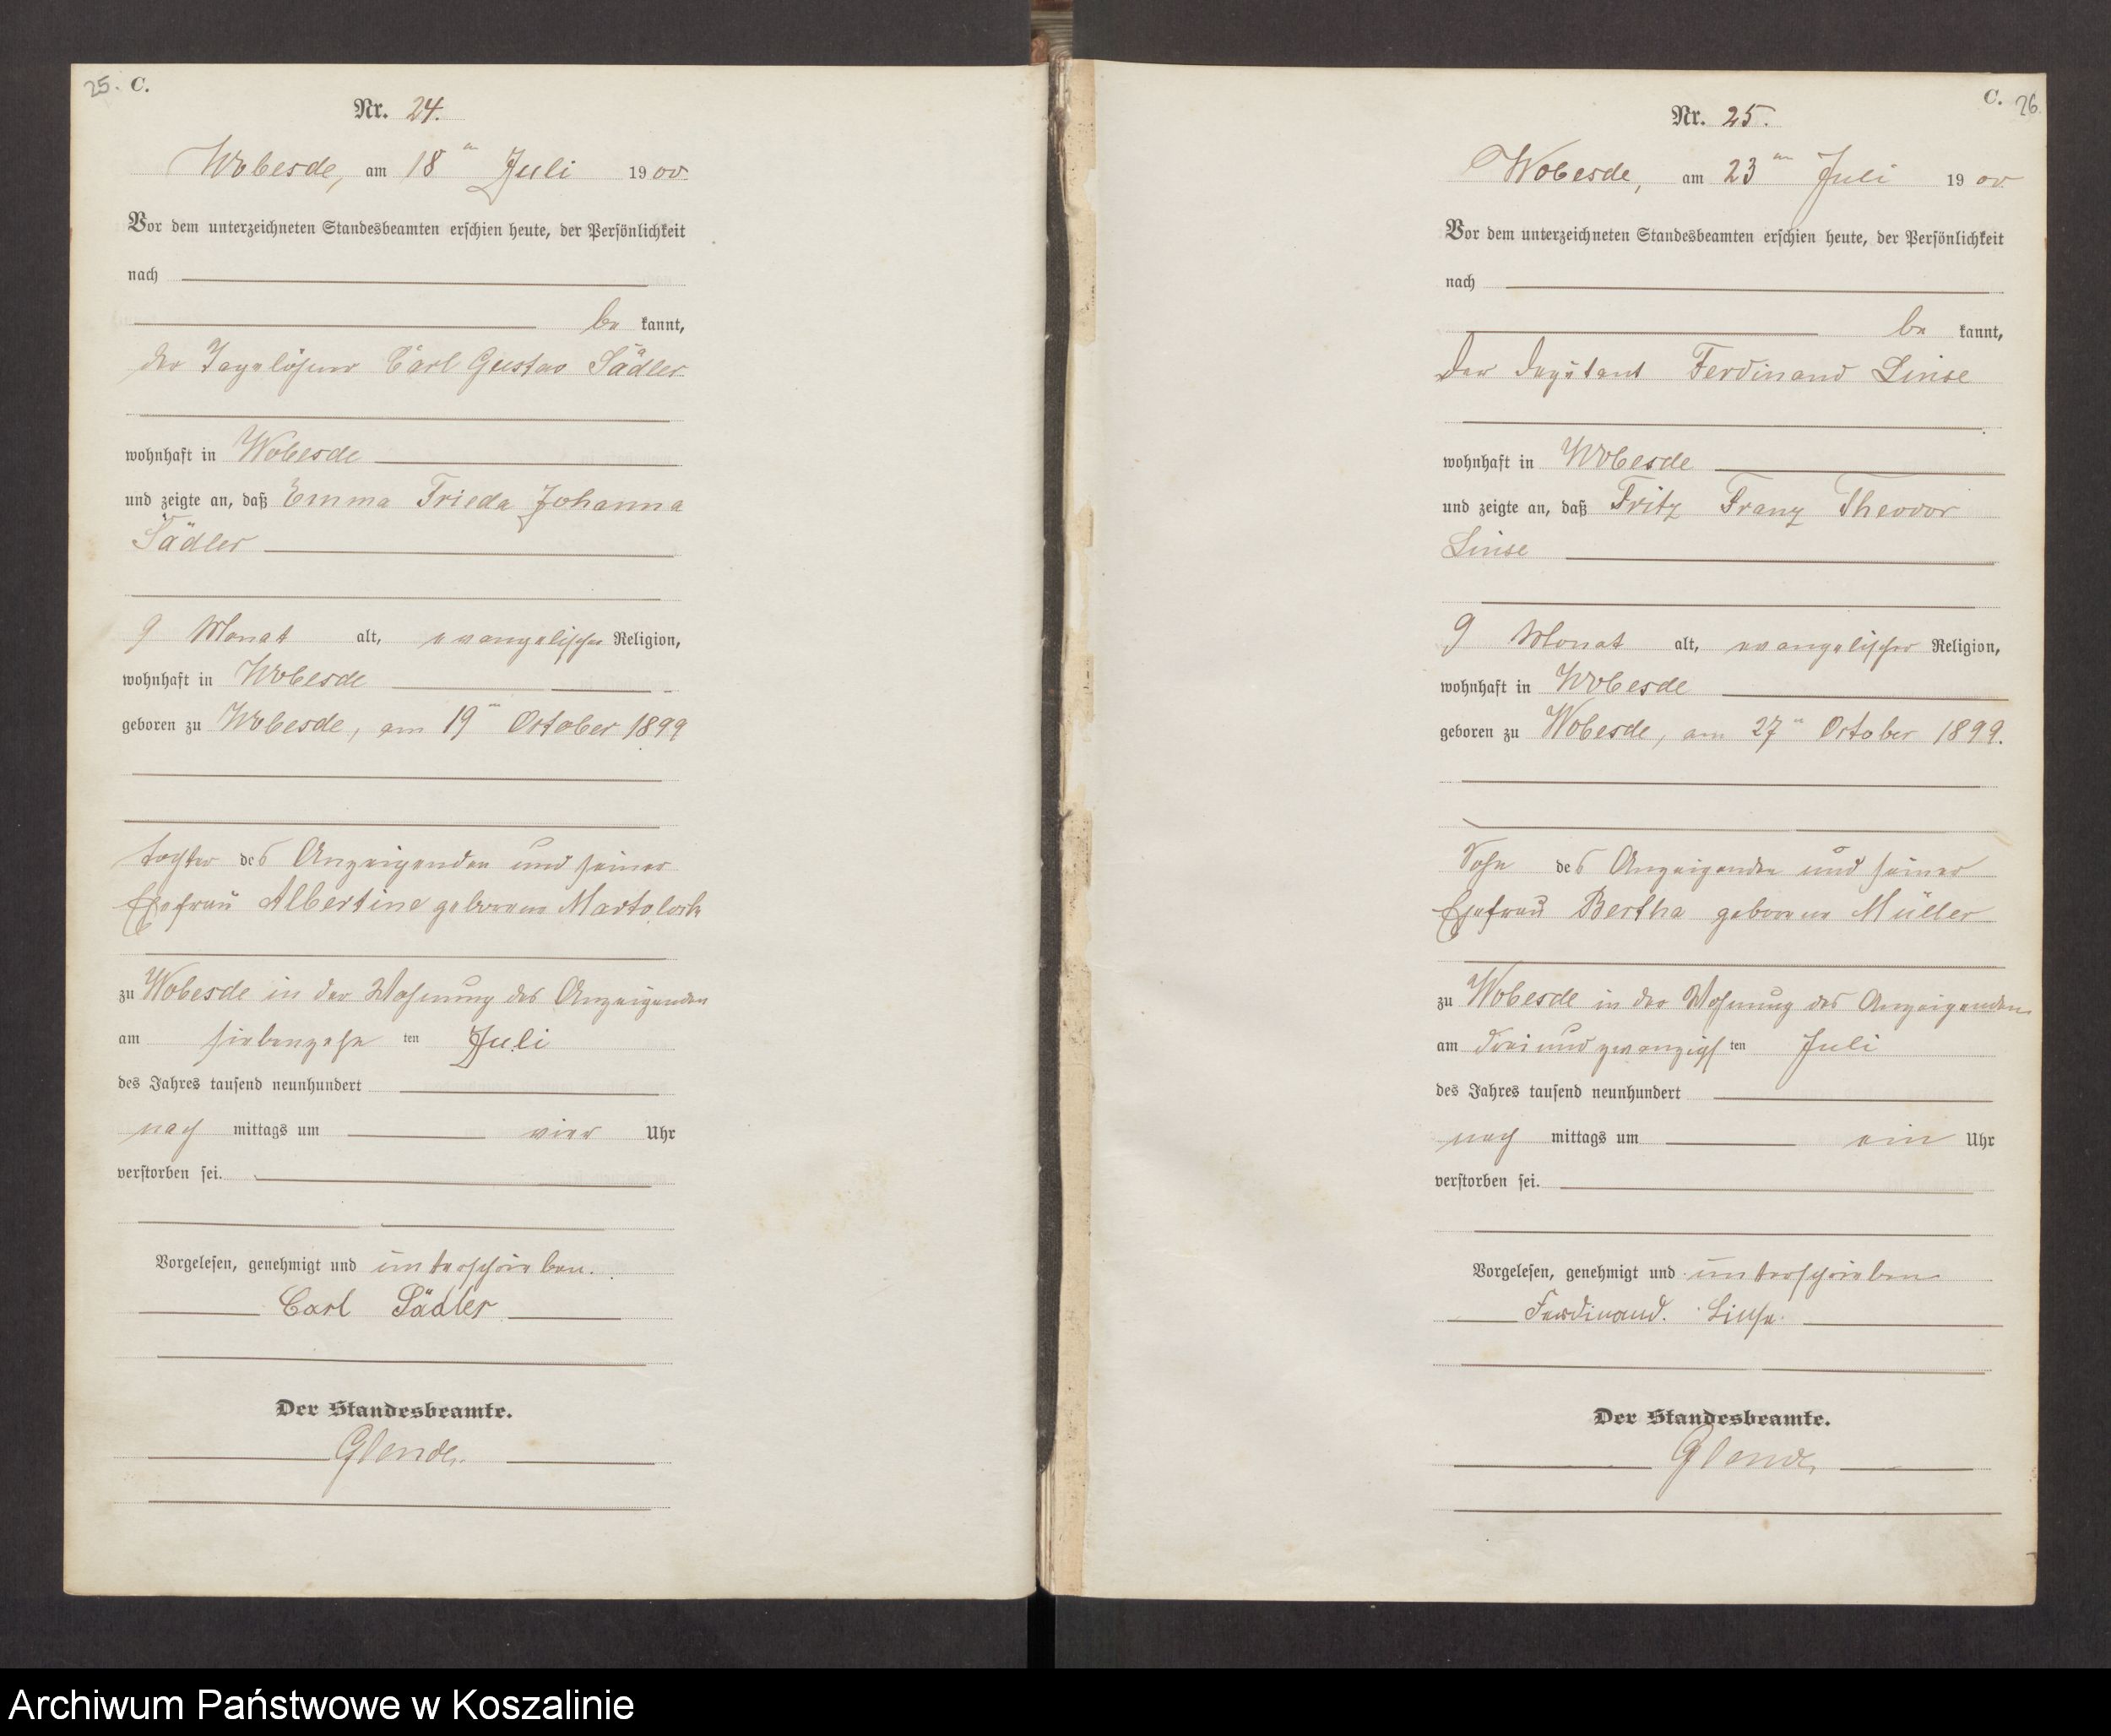 25. C.
Nr. 24.
Wobesde, am 18ten Juli 1900
Vor dem unterzeichneten Standesbeamten erschien heute, der Persönlichkeit
nach
be kannt,
der Tagelöhner Carl Gustav Sädler
wohnhaft in Wobesde
und zeigte an, daß Emma Frieda Johanna
Sädler
9 Monat alt, evangelischer Religion,
wohnhaft in Wobesde
geboren zu Wobesde, am 19ten October 1899
Tochter des Anzeigenden und seiner
Ehefrau Albertine geborene
zu Wobesde in der Wohnung des Anzeigenden
am siebenzehn ten Juli
des Jahres tausend neunhundert
nach mittags um vier Uhr
verstorben sei.
Vorgelesen, genehmigt und unterschrieben.
Carl Sädler
Der Standesbeamte.
Glende
C. 26
Nr. 25.
Wobesde, am 23ten Juli 1900
Vor dem unterzeichneten Standesbeamten erschien heute, der Persönlichkeit
nach
be kannt,
der Deputant Ferdinand Linse
wohnhaft in Wobesde
und zeigte an, daß Fritz Franz Theodor
Linse
9 Monat alt, evangelischer Religion,
wohnhaft in Wobesde
geboren zu Wobesde, am 27ten October 1899.
Sohn des Anzeigenden und seiner
Ehefrau Bertha geborene Müller
zu Wobesde in der Wohnung des Anzeigenden
am dreiundzwanzigs ten Juli
des Jahres tausend neunhundert
nach mittags um ein Uhr
verstorben sei.
Vorgelesen, genehmigt und unterschrieben
Ferdinand. Linse.
Der Standesbeamte.
Glende
Archiwum Państwowe w Koszalinie